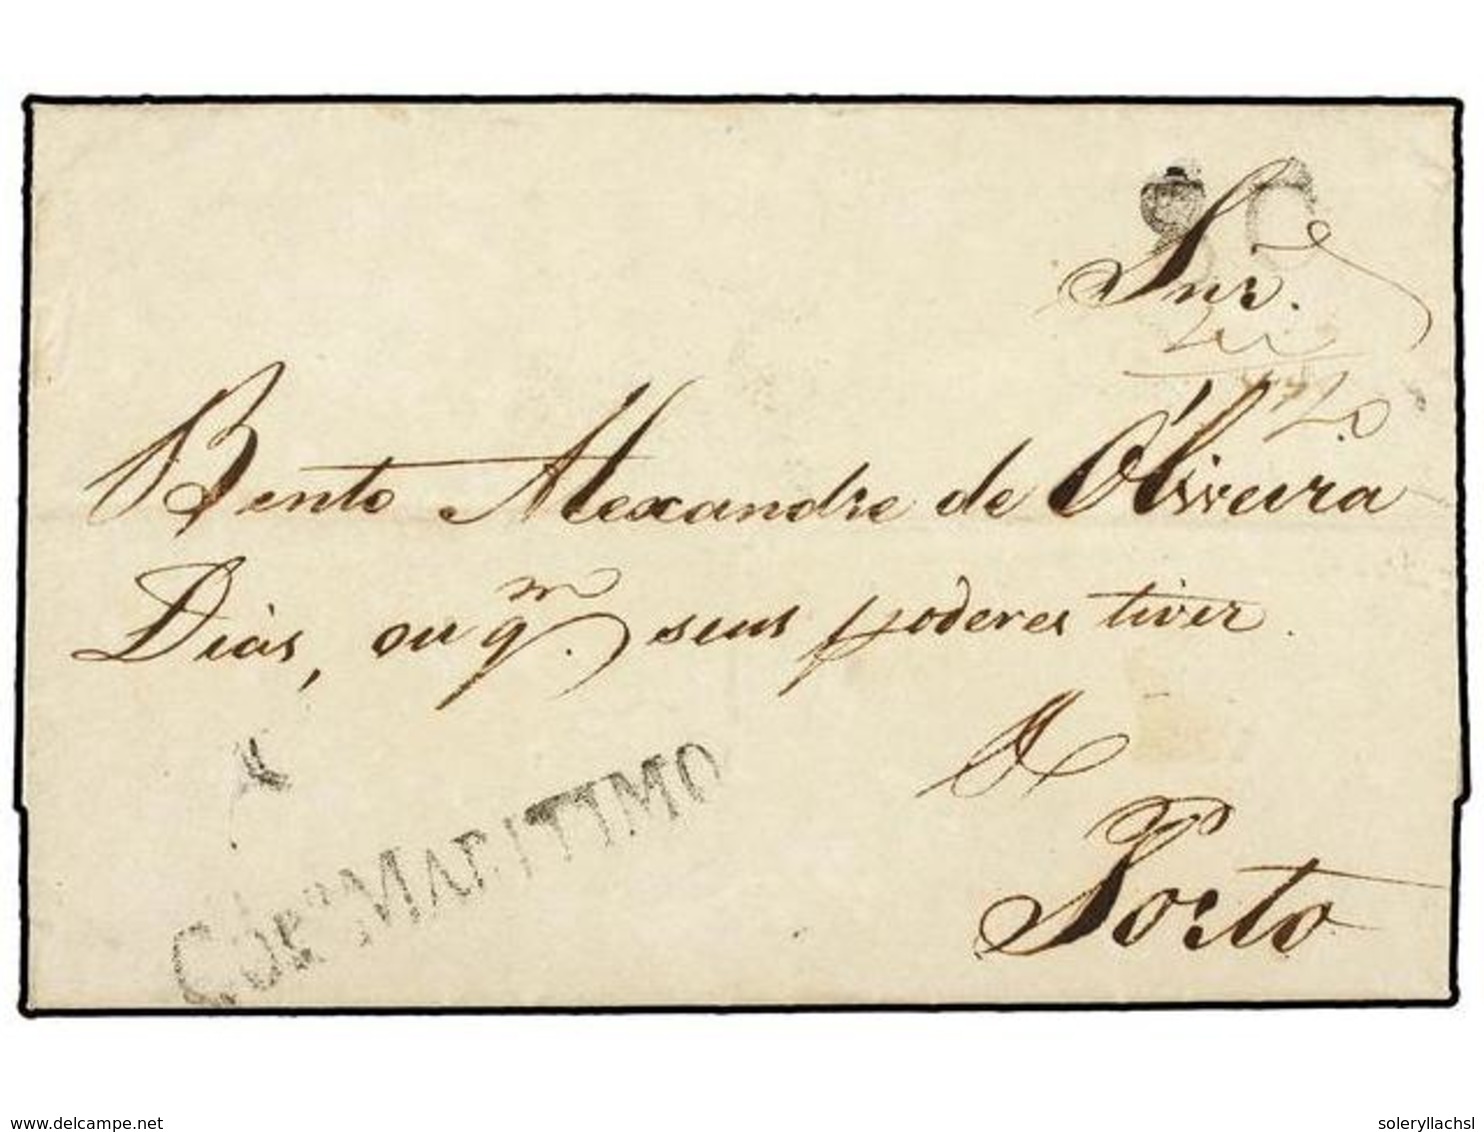 80
Snr.
Bento Alexandre de Oliveira
Dias, ou q.m seus poderes tiver.
Porto
A
Cor.o MARITIMO
www.delcampe.net
soleryllachsl